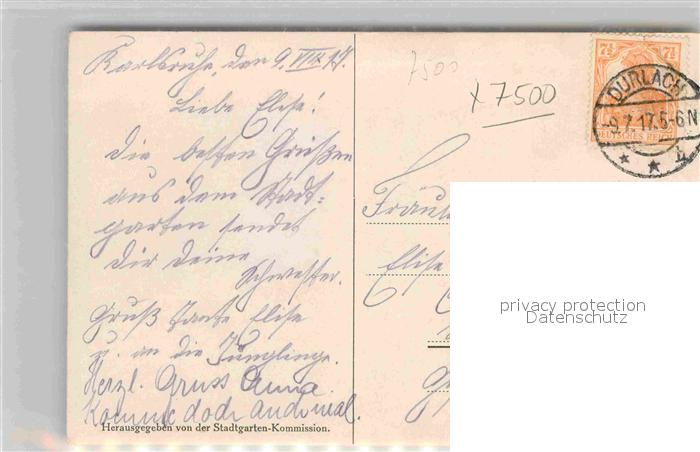 Karlsruhe, den 9. VII. 17.
Liebe Elise!
Die besten Grüßen
aus dem Stadt=
garten sendet
Dir Deine
Schwester.
Gruß Tante Elise
u. an die Jünglinge.
Herzl. Gruss Anna.
Komme doch auch mal.
Herausgegeben von der Stadtgarten-Kommission.
7500
x 7500
7½ 7½
DEUTSCHES REICH
DURLACH
-9.7.17.5-6N
Fräul
Elise
privacy protection
Datenschutz